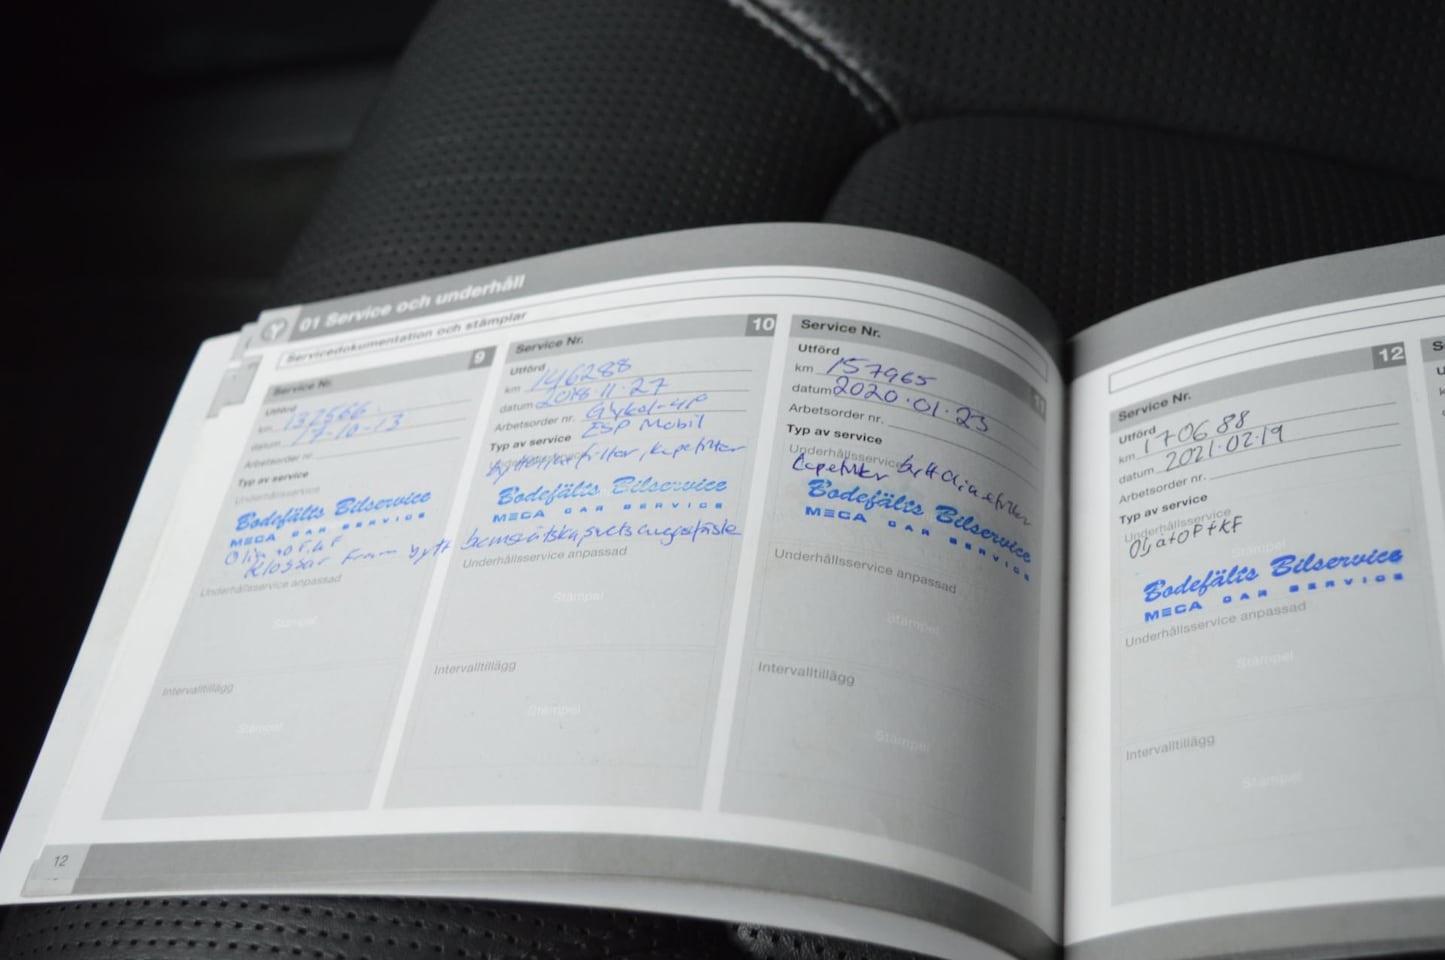 01 Service och underhåll
Servicedokumentation och stämplar
Service Nr. 9
Utförd
km 137566
datum 17-10-13
Arbetsorder nr.
Typ av service
Underhållsservice
Bodefälts Bilservice
MECA CAR SERVICE
Klossar fram bytt
Underhållsservice anpassad
Stämpel
Intervalltillägg
Stämpel
Service Nr. 10
Utförd
km 146288
datum 2018-11-27
Arbetsorder nr. Glykol-UP
ESP Mobil
Typ av service
filter, kupefilter
Bodefälts Bilservice
MECA CAR SERVICE
Underhållsservice anpassad
Stämpel
Intervalltillägg
Stämpel
Service Nr. 11
Utförd
km 157965
datum 2020.01.23
Arbetsorder nr.
Typ av service
Underhållsservice bytt olja efilter
Bodefälts Bilservice
MECA CAR SERVICE
Underhållsservice anpassad
Stämpel
Intervalltillägg
Stämpel
Service Nr. 12
Utförd
km 170688
datum 2021.02.19
Arbetsorder nr.
Typ av service
Underhållsservice
Olja+OF+KF
Stämpel
Bodefälts Bilservice
MECA CAR SERVICE
Underhållsservice anpassad
Stämpel
Intervalltillägg
Stämpel
12